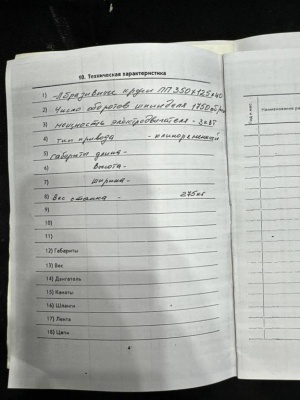 10. Техническая характеристика
1) Абразивные круги ПП 350х125х40
2) Число оборотов шпинделя 1750
3) мощность электродвигателя - 3 кВт
4) тип привода - клиноременной
5) габариты длина -
6) высота -
7) ширина -
8) Вес станка - 275 кг
9)
10)
11)
12) Габариты
13) Вес
14) Двигатель
15) Канаты
16) Шланги
17) Лента
18) Цепи
Наименование